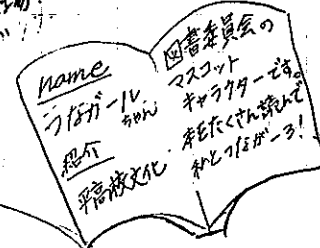 name
うながール
ちゃん
紹介
図書委員会の
マスコット
キャラクターです。
本をたくさん読んで
私とつながーろ!